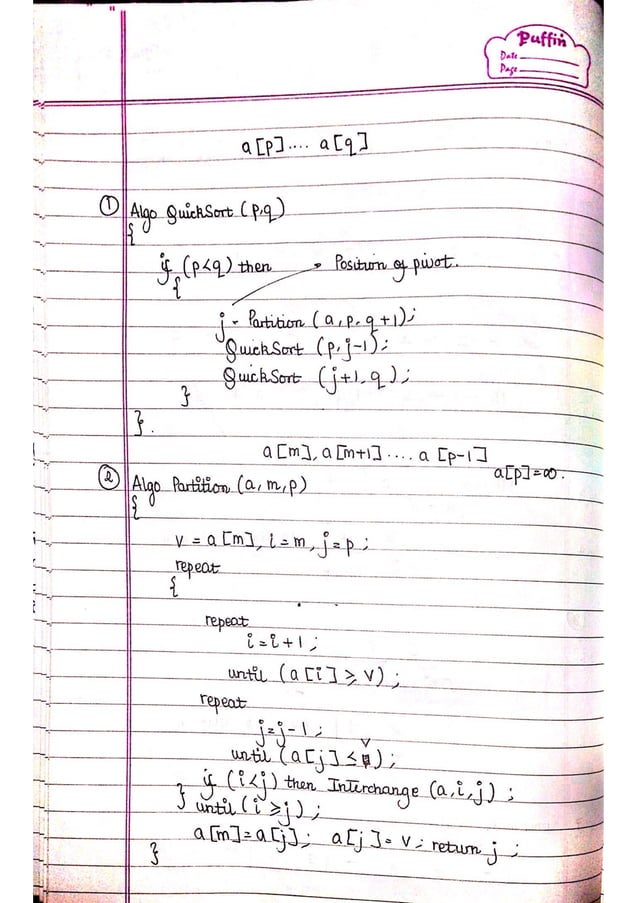 Puffin
Date
Page
a[p].... a[q]
① Algo QuickSort (p,q)
{
if (p<q) then → Position of pivot.
{
j - Partition (a, p, q+1);
QuickSort (p, j-1);
QuickSort (j+1, q);
}
}.
a[m], a[m+1] .... a [p-1]
a[p]=∞.
② Algo Partition (a, m, p)
{
v = a[m], i=m, j=p;
repeat
{
repeat
i=i+1;
until (a[i] ≥ v);
repeat
j=j-1;
until (a[j] ≤ v);
if (i<j) then Interchange (a, i, j);
} until (i ≥ j);
a[m]=a[j]; a[j]= v; return j;
}